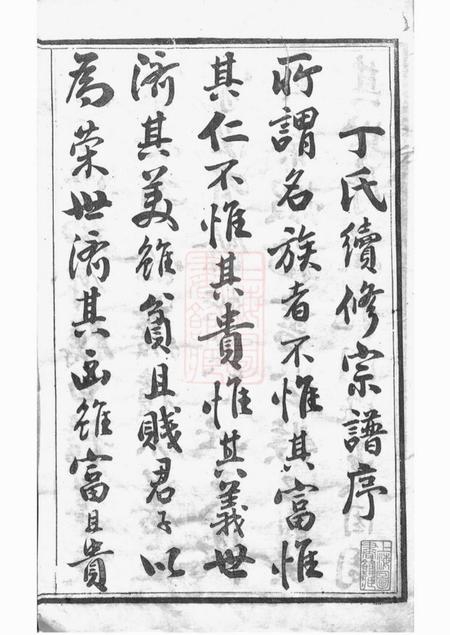 丁氏續修宗譜序
所謂名族者不惟其富惟
其仁不惟其貴惟其義世
濟其美雖貧且賤君子以
為榮世濟其凶雖富且貴